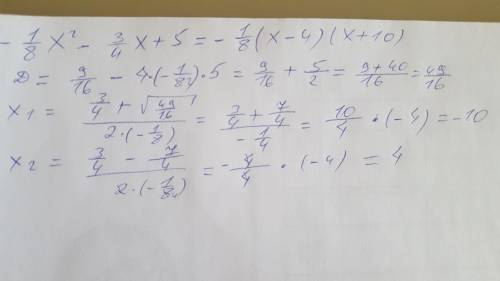 - 1/8 x² - 3/4 x + 5 = - 1/8 (x - 4) (x + 10)
D = 9/16 - 4·(-1/8)·5 = 9/16 + 5/2 = (9 + 40)/16 = 49/16
x₁ = (3/4 + √(49/16))/(2·(-1/8)) = (3/4 + 7/4)/(-1/4) = 10/4 · (-4) = -10
x₂ = (3/4 - 7/4)/(2·(-1/8)) = - 4/4 · (-4) = 4